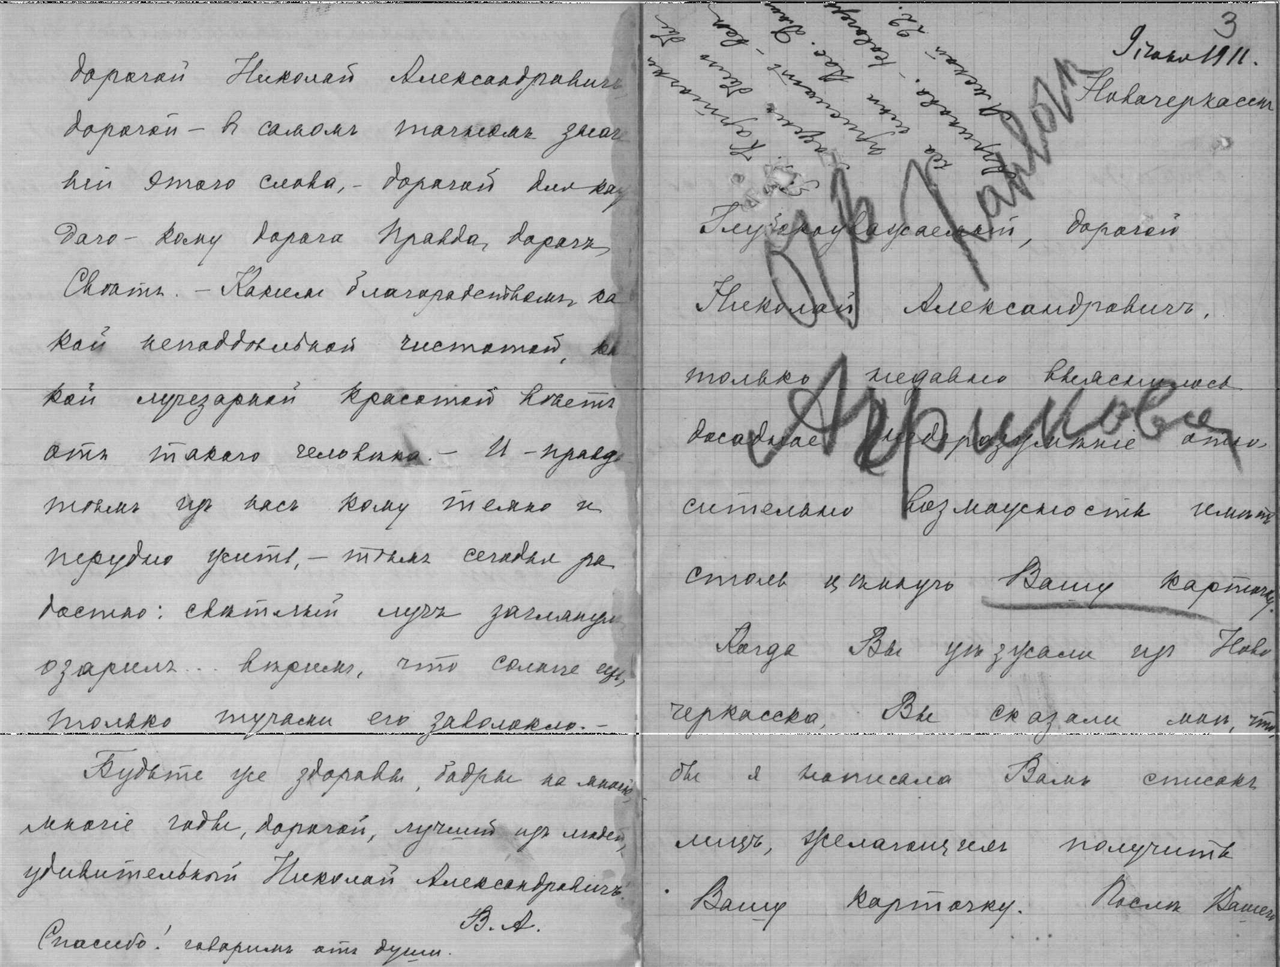 дорогой Николай Александровичъ
дорогой – в самомъ точномъ значе
нiи этого слова, – дорогой для каж
даго – кому дорога Правда, дорогъ
Свѣтъ. – Какимъ благородствомъ, ка
кой неподдѣльной чистотой, ка
кой лучезарной красотой вѣетъ
отъ такого человѣка. – И – правда
тѣмъ изъ насъ кому темно и
трудно жить, – тѣмъ сегодня ра
достно: свѣтлый лучъ заглянулъ
озарилъ... вѣримъ, что солнце есть,
только тучами его заволокло. –
Будьте же здоровы, бодры на многiе,
многiе годы, дорогой, лучшiй изъ людей,
удивительный Николай Александровичъ.
В. А.
Спасибо! говоримъ отъ души.
3
9 iюня 1911.
Новочеркасскъ
Глубокоуважаемый, дорогой
Николай Александровичъ,
только недавно выяснилось
досадное недоразумѣнiе отно
сительно возможности имѣть
столь цѣнную Вашу карточку.
Когда Вы уѣзжали изъ Ново
черкасска, Вы сказали мнѣ, что
бы я написала Вамъ списокъ
лицъ, желающихъ получить
Вашу карточку. Послѣ Вашего
Харьков
Агринова